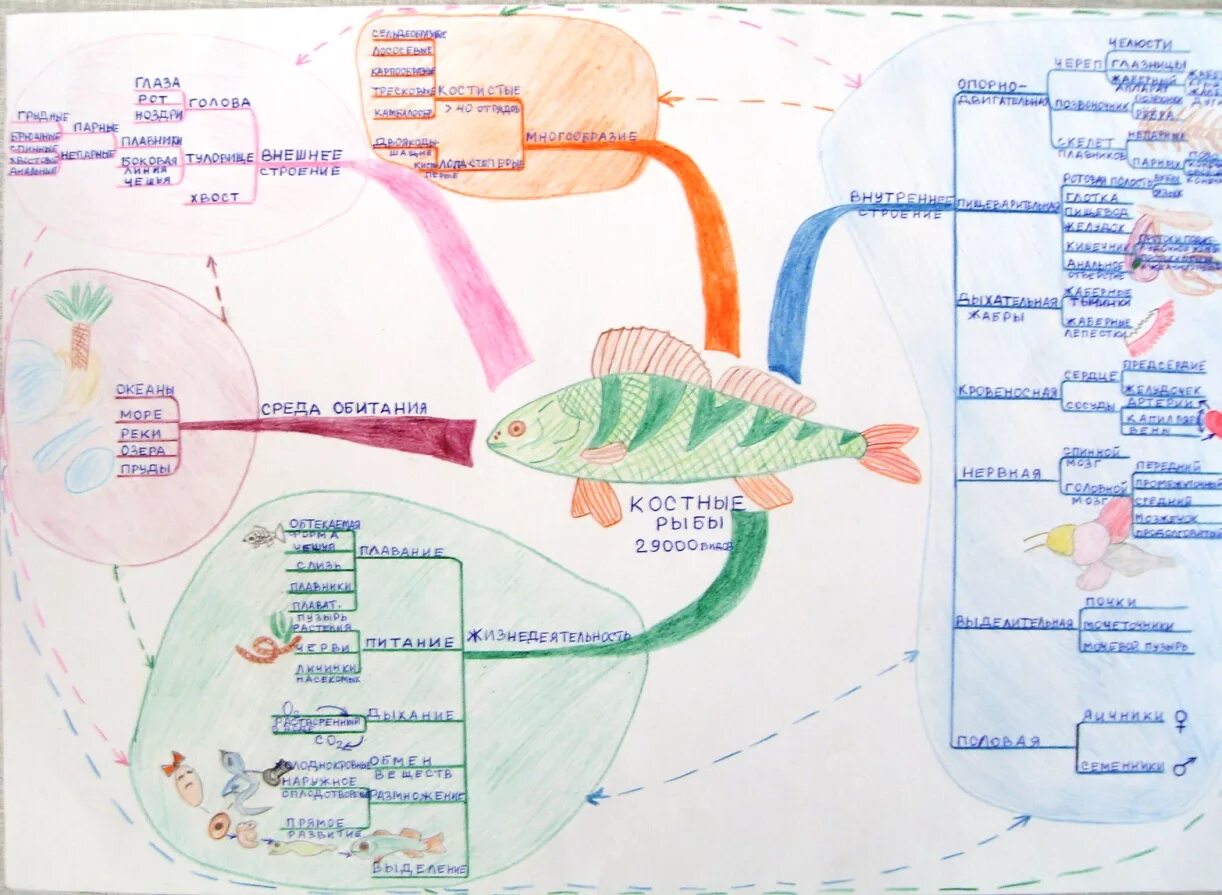 КОСТНЫЕ
РЫБЫ
29000 видов
ВНЕШНЕЕ
СТРОЕНИЕ
ГОЛОВА
ГЛАЗА
РОТ
НОЗДРИ
ТУЛОВИЩЕ
ПЛАВНИКИ
ПАРНЫЕ
ГРУДНЫЕ
БРЮШНЫЕ
НЕПАРНЫЕ
СПИННЫЕ
ХВОСТОВОЙ
АНАЛЬНЫЙ
БОКОВАЯ
ЛИНИЯ
ЧЕШУЯ
ХВОСТ
МНОГООБРАЗИЕ
КОСТИСТЫЕ
> 40 ОТРЯДОВ
СЕЛЬДЕОБРАЗНЫЕ
ЛОСОСЕВЫЕ
КАРПООБРАЗНЫЕ
ТРЕСКОВЫЕ
КАМБАЛООБР.
ЛОПАСТЕПЕРЫЕ
ДВОЯКОДЫ-
ШАЩИЕ
КИСТЕ
ПЕРЫЕ
ВНУТРЕННЕЕ
СТРОЕНИЕ
ОПОРНО-
ДВИГАТЕЛЬНАЯ
ЧЕРЕП
ЧЕЛЮСТИ
ГЛАЗНИЦЫ
ЖАБЕРНЫЙ
АППАРАТ
ПОЗВОНОЧНИК
ПОЗВОНКИ
РЕБРА
СКЕЛЕТ
ПЛАВНИКОВ
НЕПАРНЫХ
ПАРНЫХ
ПИЩЕВАРИТЕЛЬНАЯ
РОТОВАЯ ПОЛОСТЬ
ЗУБЫ
ЯЗЫК
ГЛОТКА
ПИЩЕВОД
ЖЕЛУДОК
КИШЕЧНИК
АНАЛЬНОЕ
ОТВЕРСТИЕ
ДЫХАТЕЛЬНАЯ
ЖАБРЫ
ЖАБЕРНЫЕ
ТЫЧИНКИ
ЖАБЕРНЫЕ
ЛЕПЕСТКИ
КРОВЕНОСНАЯ
СЕРДЦЕ
ПРЕДСЕРДИЕ
ЖЕЛУДОЧЕК
СОСУДЫ
АРТЕРИИ
КАПИЛЛЯРЫ
ВЕНЫ
НЕРВНАЯ
СПИННОЙ
МОЗГ
ГОЛОВНОЙ
МОЗГ
ПЕРЕДНИЙ
ПРОМЕЖУТОЧНЫЙ
СРЕДНИЙ
МОЗЖЕЧОК
ПРОДОЛГОВАТЫЙ
ВЫДЕЛИТЕЛЬНАЯ
ПОЧКИ
МОЧЕТОЧНИКИ
МОЧЕВОЙ ПУЗЫРЬ
ПОЛОВАЯ
ЯИЧНИКИ ♀
СЕМЕННИКИ ♂
СРЕДА ОБИТАНИЯ
ОКЕАНЫ
МОРЕ
РЕКИ
ОЗЕРА
ПРУДЫ
ЖИЗНЕДЕЯТЕЛЬНОСТЬ
ПЛАВАНИЕ
ОБТЕКАЕМАЯ
ФОРМА
ЧЕШУЯ
СЛИЗЬ
ПЛАВНИКИ
ПЛАВАТ.
ПУЗЫРЬ
ПИТАНИЕ
РАСТЕНИЯ
ЧЕРВИ
ЛИЧИНКИ
НАСЕКОМЫХ
ДЫХАНИЕ
O₂
РАСТВОРЕННЫЙ
В ВОДЕ
CO₂
ОБМЕН
ВЕЩЕСТВ
ХОЛОДНОКРОВНЫЕ
РАЗМНОЖЕНИЕ
НАРУЖНОЕ
ОПЛОДОТВОРЕНИЕ
ПРЯМОЕ
РАЗВИТИЕ
ВЫДЕЛЕНИЕ